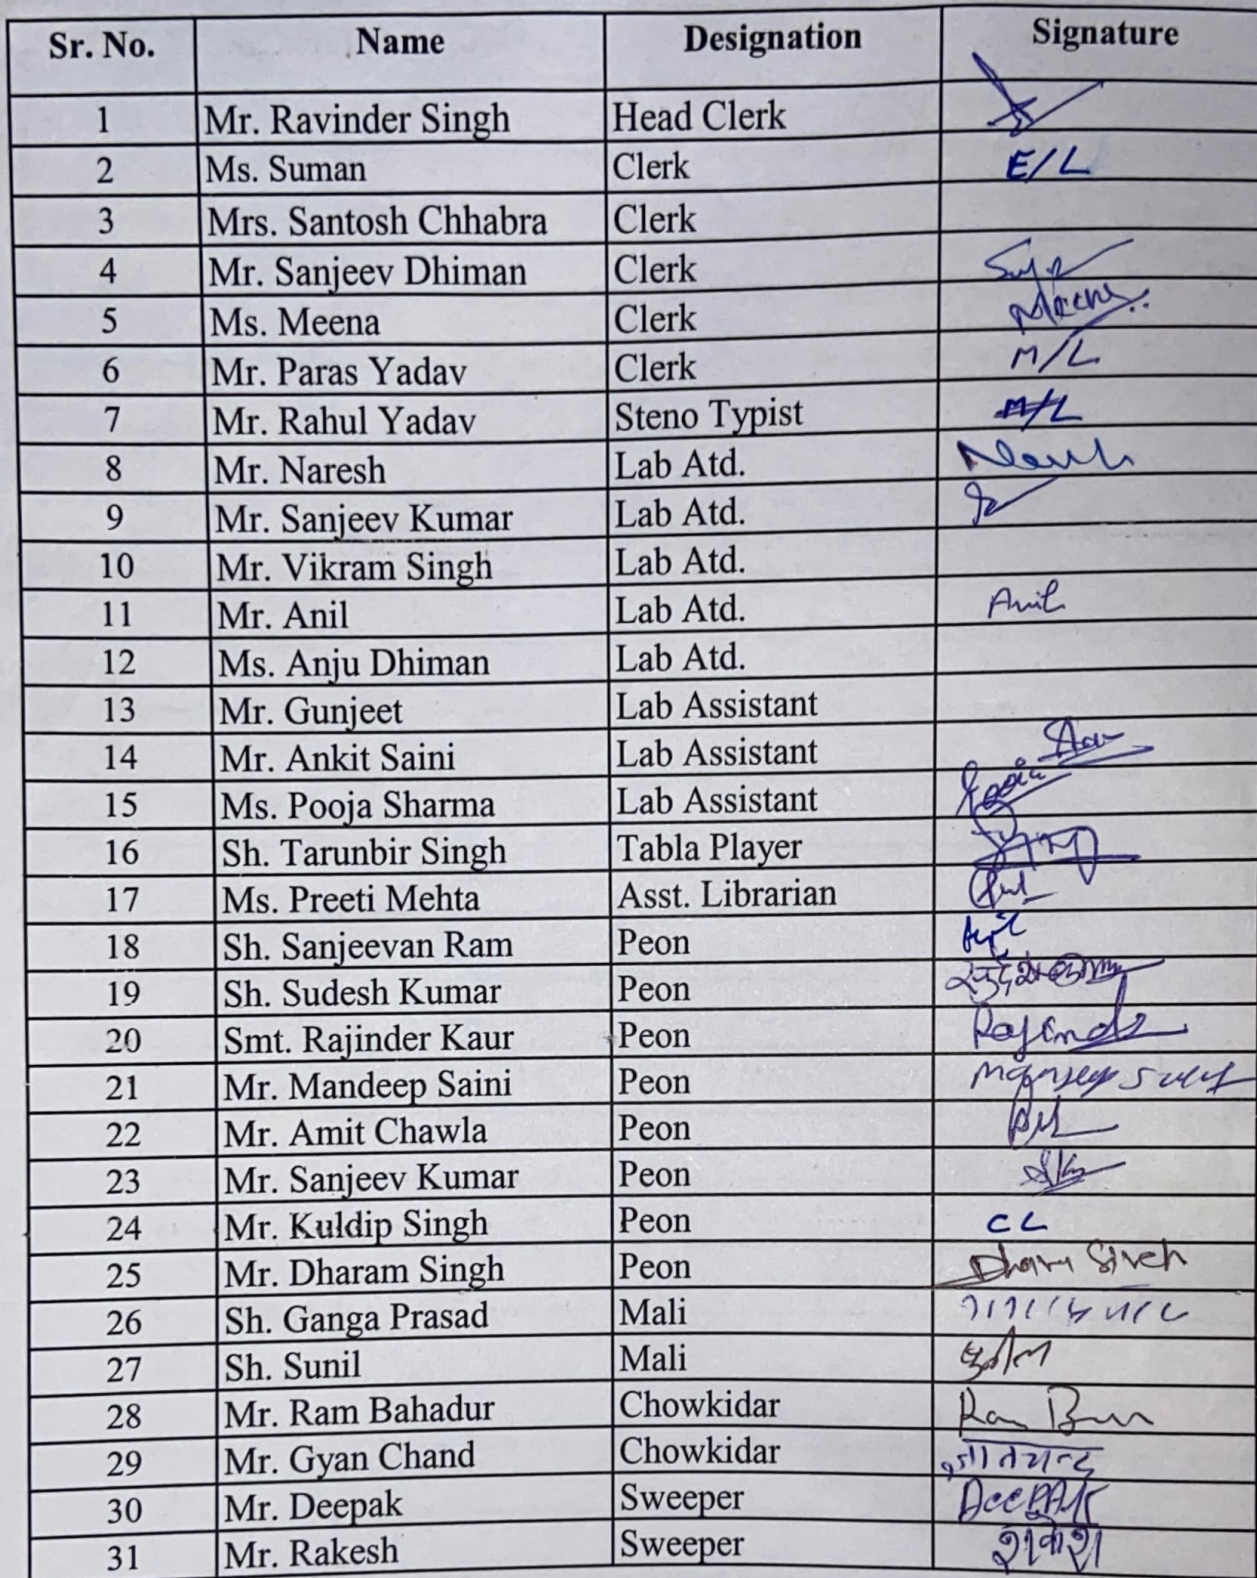 Sr. No. Name Designation Signature
1 Mr. Ravinder Singh Head Clerk
2 Ms. Suman Clerk E/L
3 Mrs. Santosh Chhabra Clerk
4 Mr. Sanjeev Dhiman Clerk
5 Ms. Meena Clerk Meena
6 Mr. Paras Yadav Clerk M/L
7 Mr. Rahul Yadav Steno Typist M/L
8 Mr. Naresh Lab Atd.
9 Mr. Sanjeev Kumar Lab Atd.
10 Mr. Vikram Singh Lab Atd.
11 Mr. Anil Lab Atd. Anil
12 Ms. Anju Dhiman Lab Atd.
13 Mr. Gunjeet Lab Assistant
14 Mr. Ankit Saini Lab Assistant
15 Ms. Pooja Sharma Lab Assistant
16 Sh. Tarunbir Singh Tabla Player
17 Ms. Preeti Mehta Asst. Librarian
18 Sh. Sanjeevan Ram Peon
19 Sh. Sudesh Kumar Peon
20 Smt. Rajinder Kaur Peon
21 Mr. Mandeep Saini Peon
22 Mr. Amit Chawla Peon
23 Mr. Sanjeev Kumar Peon
24 Mr. Kuldip Singh Peon CL
25 Mr. Dharam Singh Peon
26 Sh. Ganga Prasad Mali
27 Sh. Sunil Mali
28 Mr. Ram Bahadur Chowkidar
29 Mr. Gyan Chand Chowkidar
30 Mr. Deepak Sweeper Deepak
31 Mr. Rakesh Sweeper